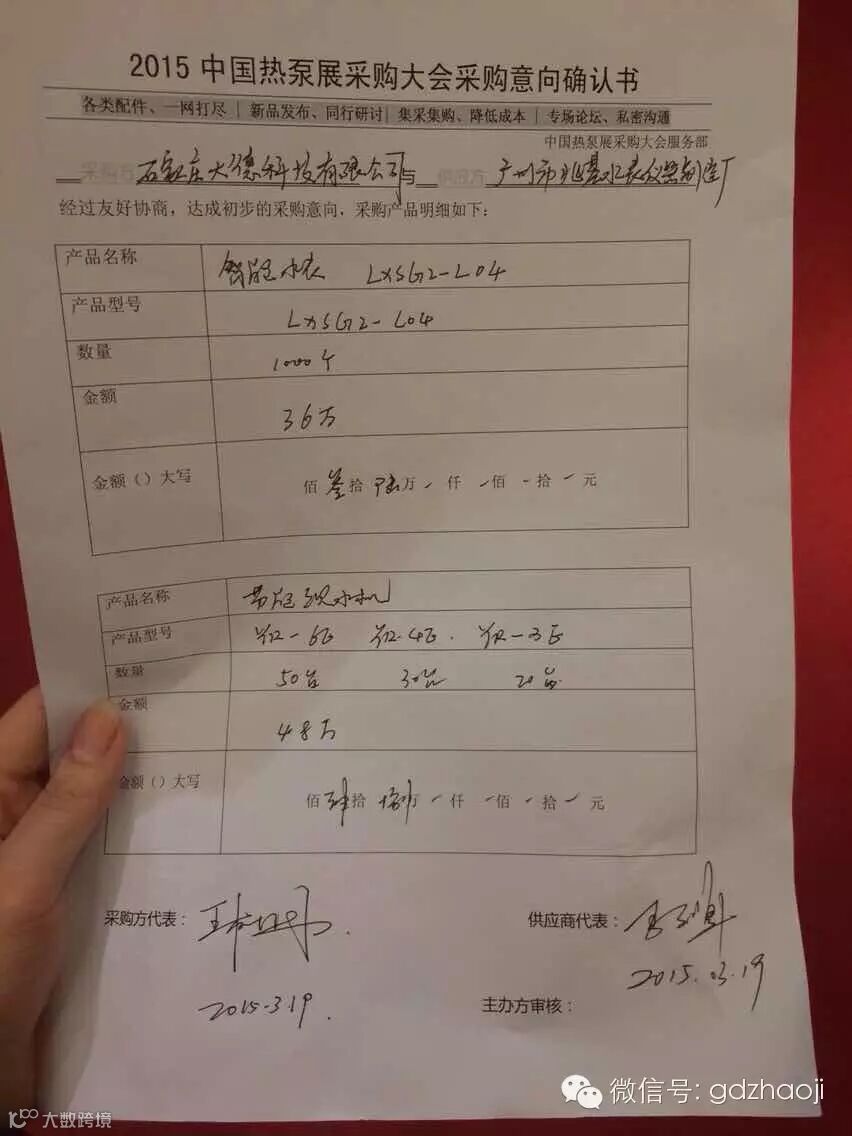 2015 中国热泵展采购大会采购意向确认书
各类配件、一网打尽 | 新品发布、同行研讨 | 集采集购、降低成本 | 专场论坛、私密沟通
中国热泵展采购大会服务部
采购方 石家庄大德科技有限公司 与 供应方 广州市兆基水表仪器制造厂
经过友好协商，达成初步的采购意向，采购产品明细如下：
产品名称 智能水表 LXSG2-L04
产品型号 LXSG2-L04
数量 1000个
金额 36万
金额（）大写 佰叁拾陆万 仟 佰 拾 元
产品名称 节能饮水机
产品型号
数量 50台 30台 20台
金额 48万
金额（）大写 佰肆拾捌万 仟 佰 拾 元
采购方代表： 供应商代表：
2015-3.19. 2015.03.19
主办方审核：
微信号: gdzhaoji
大数跨境